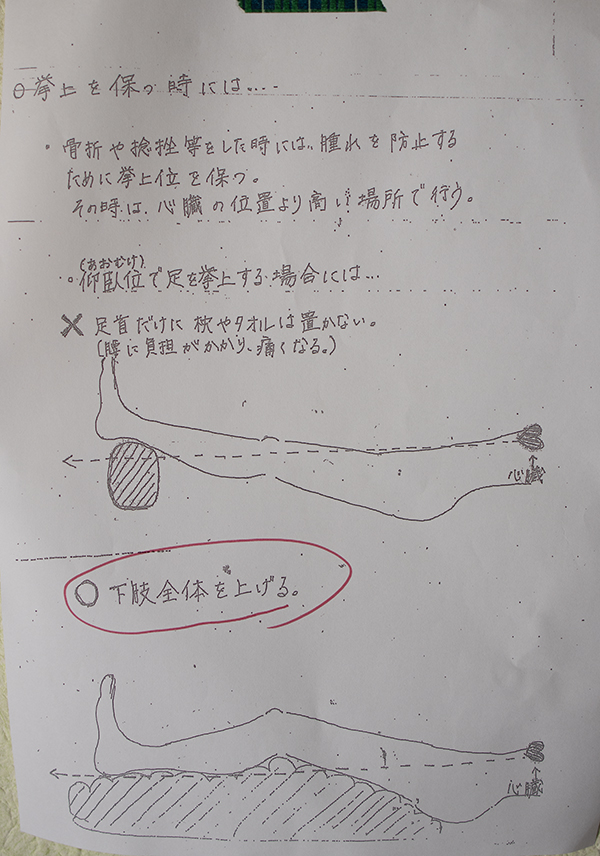 ○挙上を保つ時には....
・骨折や捻挫等をした時には、腫れを防止する
ために挙上位を保つ。
その時は、心臓の位置より高い場所で行う。
(あおむけ)
○仰臥位で足を挙上する場合には...
× 足首だけに枕やタオルは置かない。
(腰に負担がかかり、痛くなる。)
心臓
○ 下肢全体を上げる。
心臓